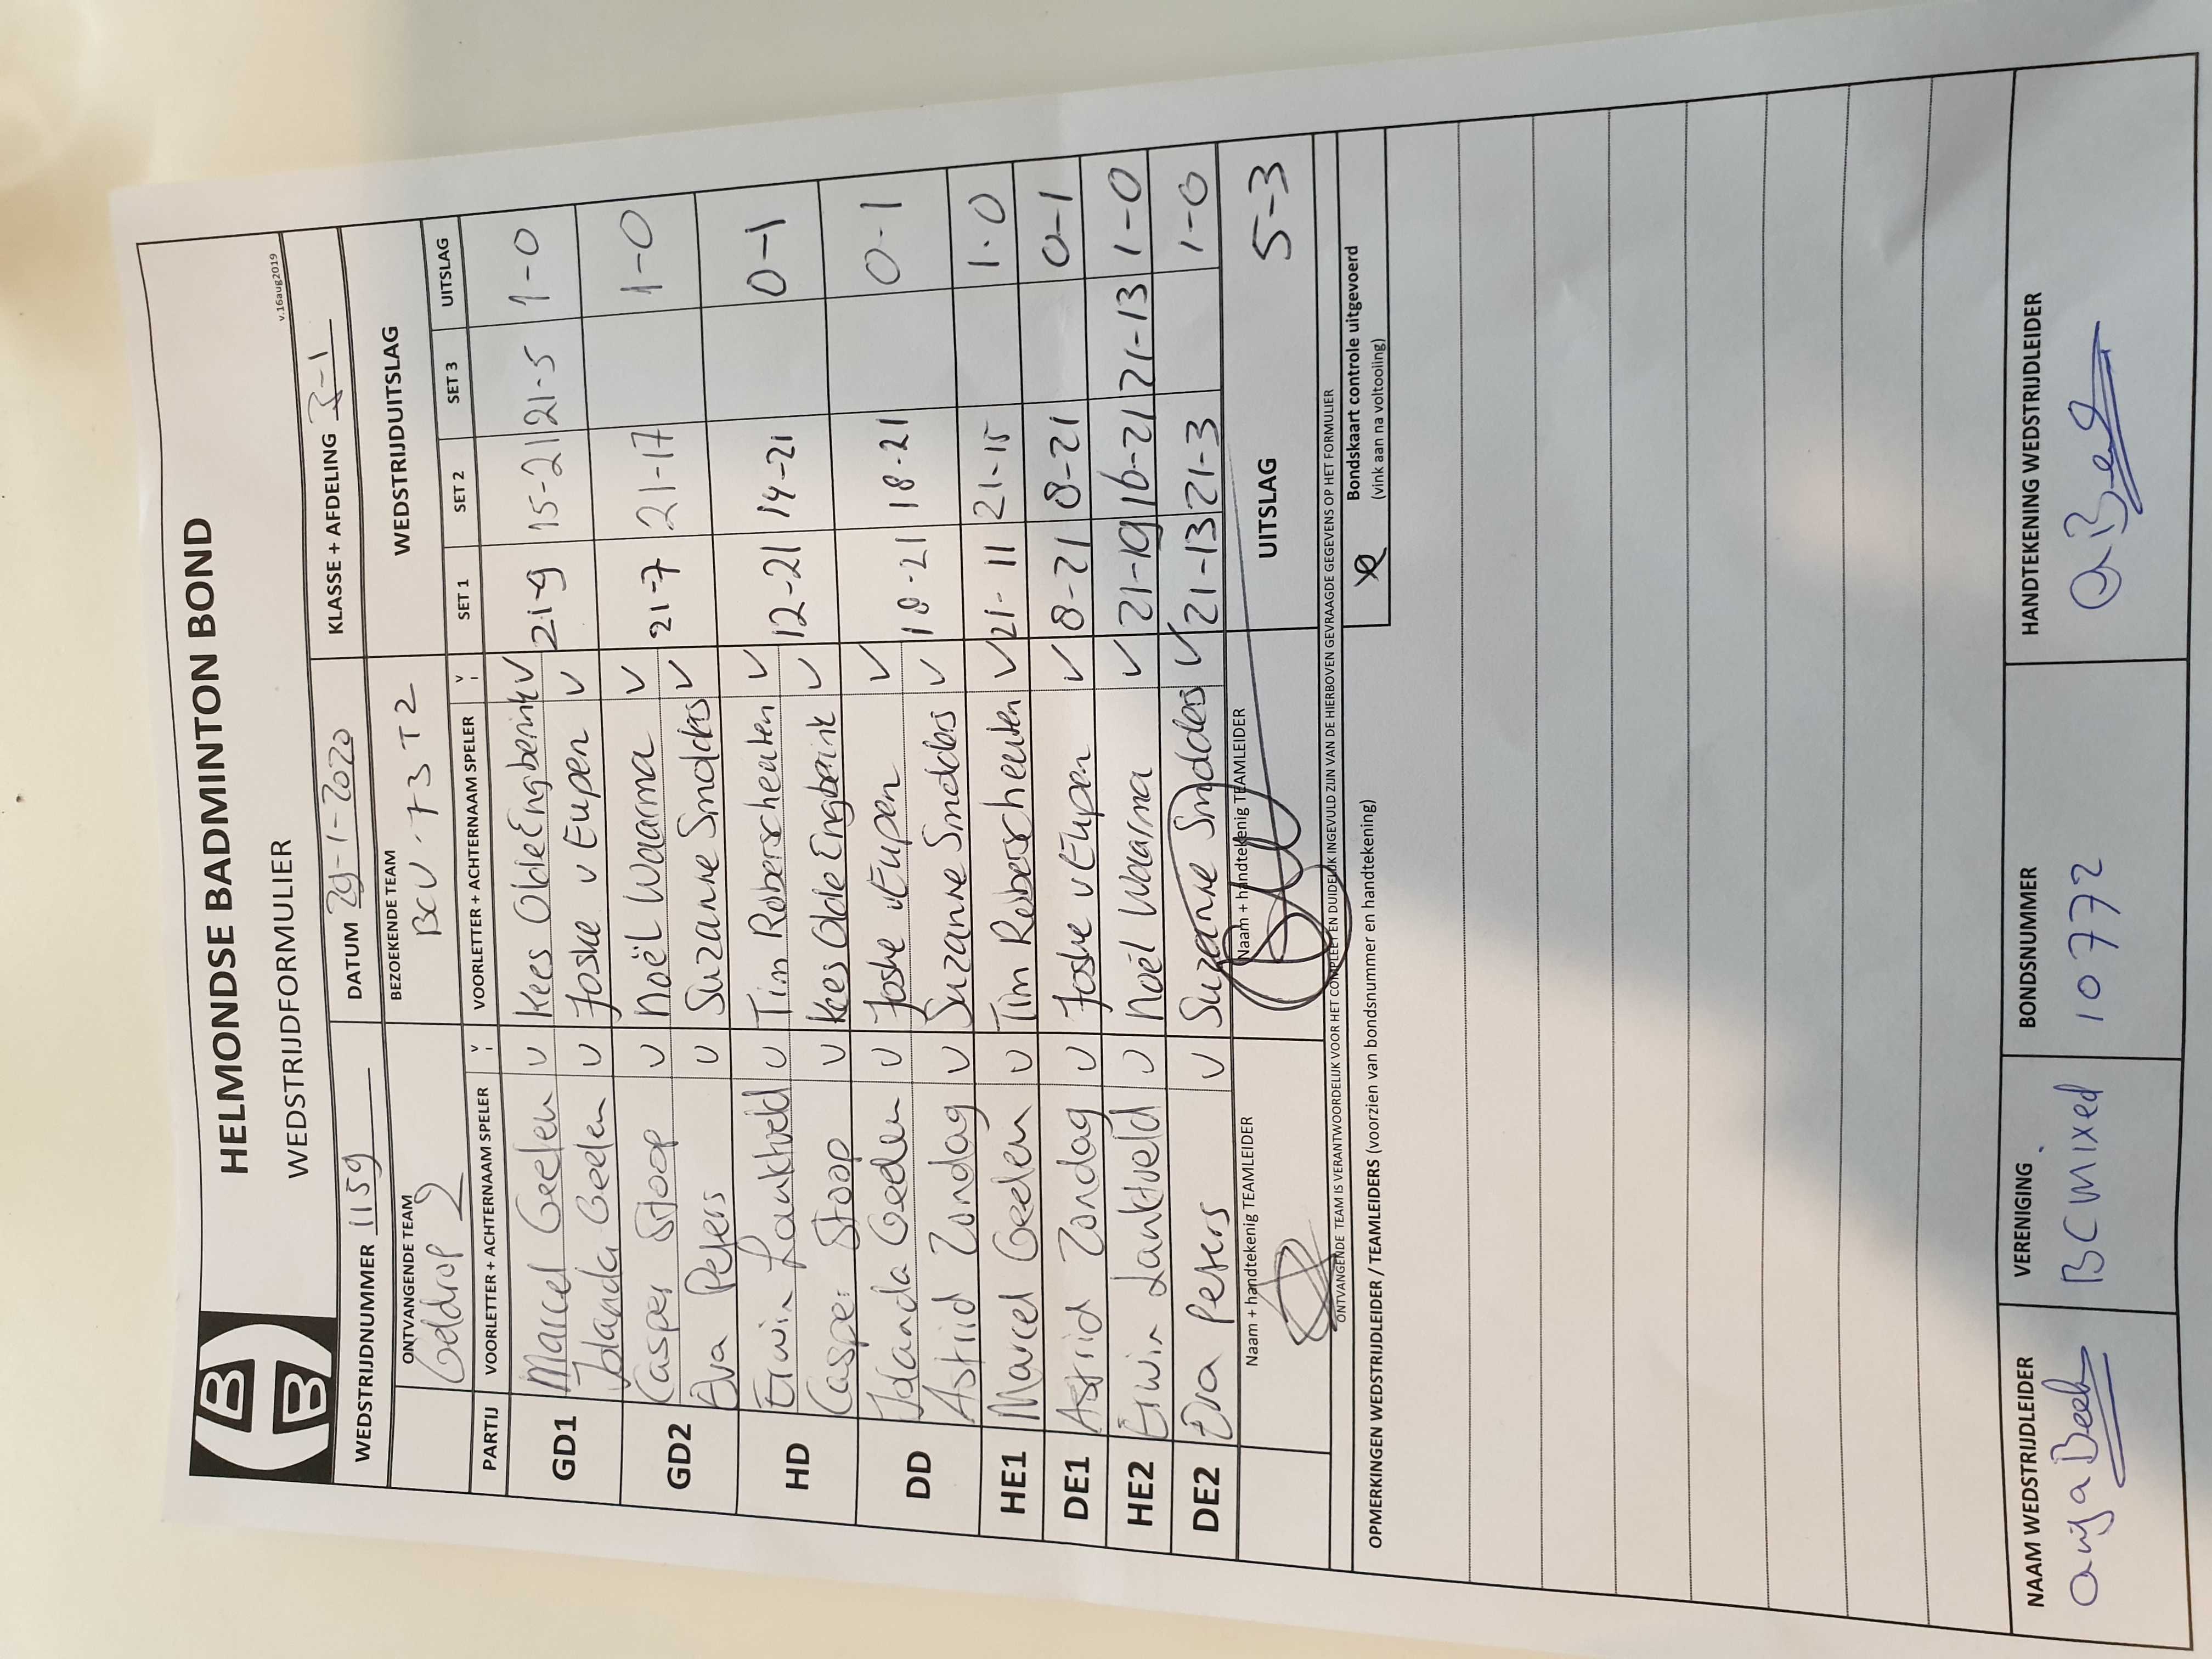 BB
HELMONDSE BADMINTON BOND
WEDSTRIJDFORMULIER
v.16aug2019
WEDSTRIJDNUMMER 1159 DATUM 29-1-2020 KLASSE + AFDELING 3-1
ONTVANGENDE TEAM BEZOEKENDE TEAM WEDSTRIJDUITSLAG
Geldrop 2 BCV-73 T2
PARTIJ VOORLETTER + ACHTERNAAM SPELER V VOORLETTER + ACHTERNAAM SPELER V SET 1 SET 2 SET 3 UITSLAG
GD1 Marcel Geelen V Kees Olde Engberink V 21-9 15-21 21-5 1-0
Jolanda Geelen V Joske v Eupen V
GD2 Casper Stoop V Noël Waarma V 21-7 21-17 1-0
Eva Peters V Suzanne Smolders V
HD Erwin Lankhveld V Tim Roberscheuten V 12-21 14-21 0-1
Casper Stoop V Kees Olde Engberink V
DD Jolanda Geelen V Joske v Eupen V 18-21 18-21 0-1
Astrid Zondag V Suzanne Smolders V
HE1 Marcel Geelen V Tim Roberscheuten V 21-11 21-15 1-0
DE1 Astrid Zondag V Joske v Eupen V 8-21 8-21 0-1
HE2 Erwin Lankveld V Noël Waarma V 21-19 16-21 21-13 1-0
DE2 Eva Peters V Suzanne Smolders V 21-13 21-3 1-0
Naam + handtekenig TEAMLEIDER Naam + handtekenig TEAMLEIDER UITSLAG 5-3
ONTVANGENDE TEAM IS VERANTWOORDELIJK VOOR HET COMPLEET EN DUIDELIJK INGEVULD ZIJN VAN DE HIERBOVEN GEVRAAGDE GEGEVENS OP HET FORMULIER
OPMERKINGEN WEDSTRIJDLEIDER / TEAMLEIDERS (voorzien van bondsnummer en handtekening) Bondskaart controle uitgevoerd
(vink aan na voltooling)
NAAM WEDSTRIJDLEIDER VERENIGING BONDSNUMMER HANDTEKENING WEDSTRIJDLEIDER
Anja Beek BC Mixed 10772